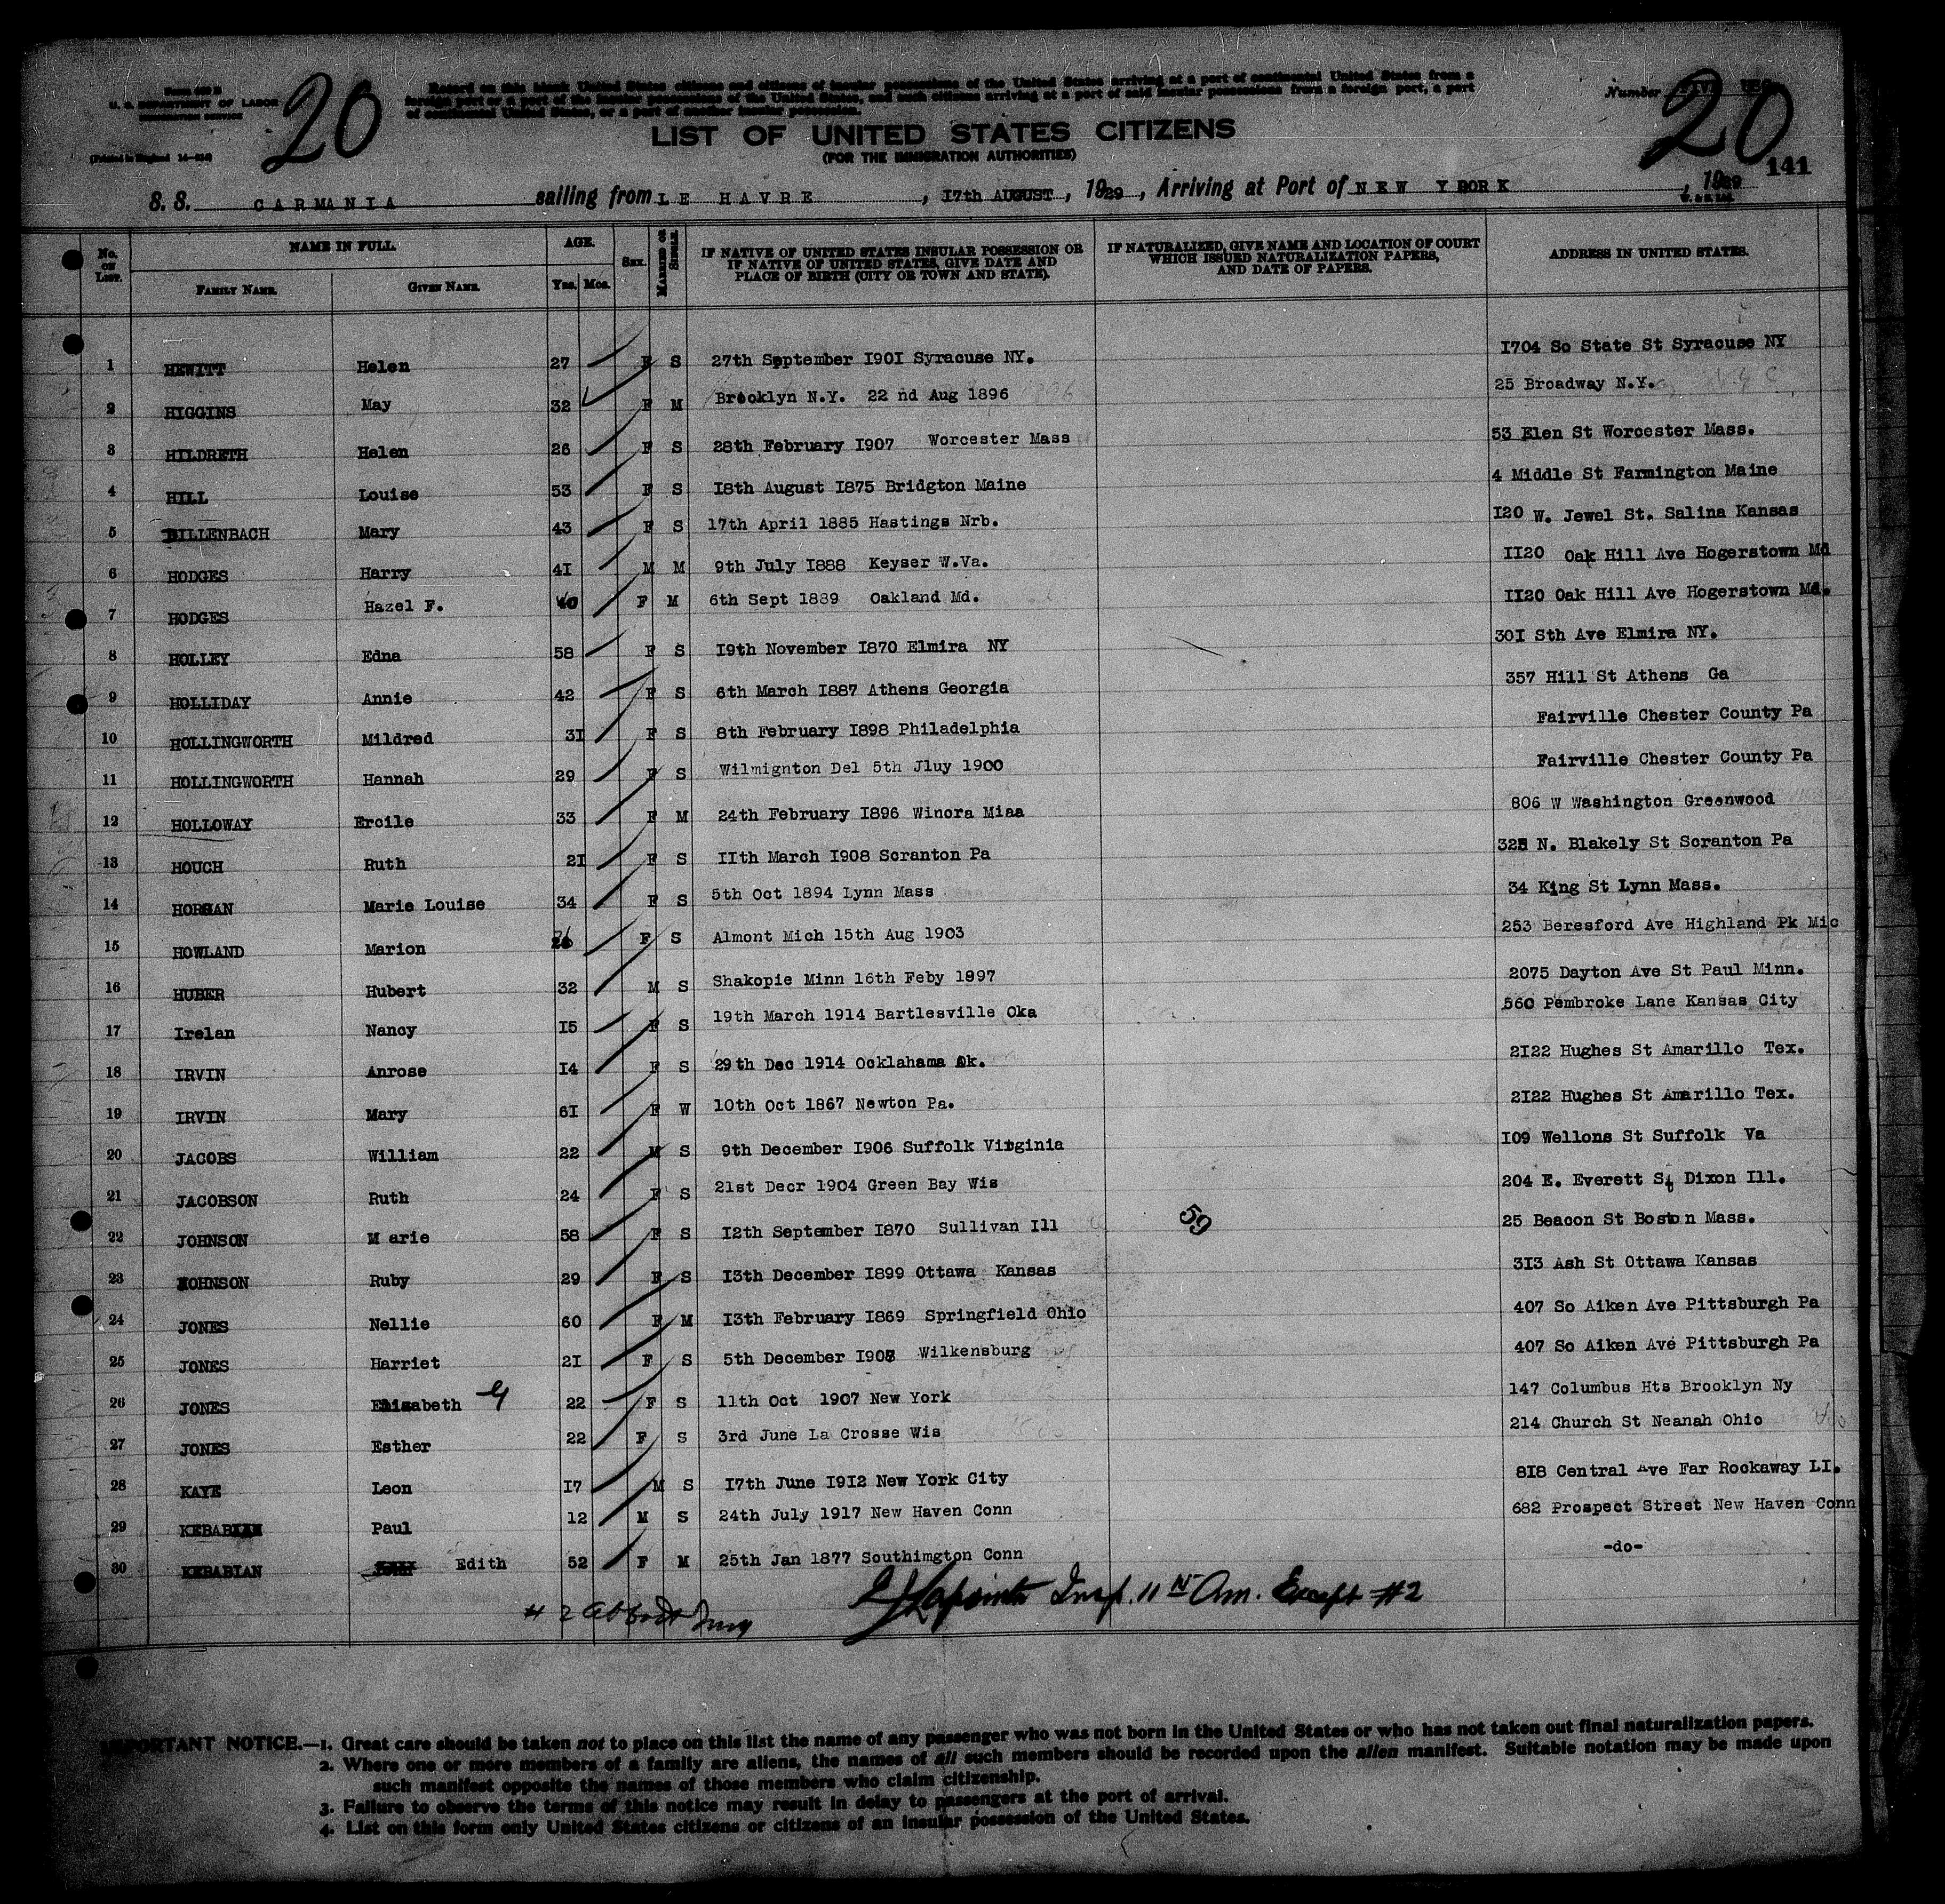 Form 630 B
U. S. DEPARTMENT OF LABOR
IMMIGRATION SERVICE
20
Record on this blank United States citizens and citizens of insular possessions of the United States arriving at a port of continental United States from a
foreign port or a port of the insular possessions of the United States, and such citizens arriving at a port of said insular possessions from a foreign port, a port
of continental United States, or a port of another insular possession.
Number
20
141
LIST OF UNITED STATES CITIZENS
(FOR THE IMMIGRATION AUTHORITIES)
S. S. CARMANIA sailing from LE HAVRE, 17th AUGUST, 1929, Arriving at Port of NEW YORK, 1929
No. on List. NAME IN FULL. AGE. Sex. MARRIED OR SINGLE. IF NATIVE OF UNITED STATES INSULAR POSSESSION OR IF NATIVE OF UNITED STATES, GIVE DATE AND PLACE OF BIRTH (CITY OR TOWN AND STATE). IF NATURALIZED, GIVE NAME AND LOCATION OF COURT WHICH ISSUED NATURALIZATION PAPERS, AND DATE OF PAPERS. ADDRESS IN UNITED STATES.
FAMILY NAME. GIVEN NAME. Yrs. Mos.
1 HEWITT Helen 27 F S 27th September I90I Syracuse NY. I704 So State St Syracuse NY
2 HIGGINS May 32 F M Brooklyn N.Y. 22 nd Aug 1896 25 Broadway N.Y.
3 HILDRETH Helen 26 F S 28th February I907 Worcester Mass 53 Elen St Worcester Mass.
4 HILL Louise 53 F S I8th August I875 Bridgton Maine 4 Middle St Farmington Maine
5 BILLENBACH Mary 43 F S 17th April 1885 Hastings Nrb. I20 W. Jewel St. Salina Kansas
6 HODGES Harry 4I M M 9th July I888 Keyser W.Va. II20 Oak Hill Ave Hogerstown Md
7 HODGES Hazel F. 40 F M 6th Sept 1889 Oakland Md. II20 Oak Hill Ave Hogerstown Md.
8 HOLLEY Edna 58 F S I9th November I870 Elmira NY 30I Sth Ave Elmira NY.
9 HOLLIDAY Annie 42 F S 6th March I887 Athens Georgia 357 Hill St Athens Ga
10 HOLLINGWORTH Mildred 3I F S 8th February I898 Philadelphia Fairville Chester County Pa
11 HOLLINGWORTH Hannah 29 F S Wilmignton Del 5th Jluy 1900 Fairville Chester County Pa
12 HOLLOWAY Ercile 33 F M 24th February I896 Winora Miaa 806 W Washington Greenwood
13 HOUCH Ruth 2I F S IIth March I908 Scranton Pa 325 N. Blakely St Scranton Pa
14 HORGAN Marie Louise 34 F S 5th Oct 1894 Lynn Mass 34 King St Lynn Mass.
15 HOWLAND Marion 26 F S Almont Mich 15th Aug 1903 253 Beresford Ave Highland Pk Mic
16 HUBER Hubert 32 M S Shakopie Minn 16th Feby 1897 2075 Dayton Ave St Paul Minn.
17 Irelan Nancy I5 F S 19th March 1914 Bartlesville Oka 560 Pembroke Lane Kansas City
18 IRVIN Anrose I4 F S 29th Dec 1914 Ocklahama Ok. 2I22 Hughes St Amarillo Tex.
19 IRVIN Mary 6I F W 10th Oct 1867 Newton Pa. 2I22 Hughes St Amarillo Tex.
20 JACOBS William 22 M S 9th December I906 Suffolk Virginia I09 Wellons St Suffolk Va
21 JACOBSON Ruth 24 F S 21st Decr 1904 Green Bay Wis 204 E. Everett St Dixon Ill.
22 JOHNSON M arie 58 F S I2th September I870 Sullivan Ill 59 25 Beacon St Boston Mass.
23 JOHNSON Ruby 29 F S I3th December I899 Ottawa Kansas 3I3 Ash St Ottawa Kansas
24 JONES Nellie 60 F M I3th February I869 Springfield Ohio 407 So Aiken Ave Pittsburgh Pa
25 JONES Harriet 2I F S 5th December I908 Wilkensburg 407 So Aiken Ave Pittsburgh Pa
26 JONES Elizabeth G 22 F S 11th Oct 1907 New York 147 Columbus Hts Brooklyn Ny
27 JONES Esther 22 F S 3rd June La Crosse Wis 214 Church St Neanah Ohio
28 KAYE Leon I7 M S I7th June I9I2 New York City 8I8 Central Ave Far Rockaway LI.
29 KEBABIAN Paul 12 M S 24th July 1917 New Haven Conn 682 Prospect Street New Haven Conn
30 KEBABIAN Edith 52 F M 25th Jan 1877 Southimgton Conn -do-
Insp. 11 Am. Except #2
# 2
IMPORTANT NOTICE.—1. Great care should be taken not to place on this list the name of any passenger who was not born in the United States or who has not taken out final naturalization papers.
2. Where one or more members of a family are aliens, the names of all such members should be recorded upon the alien manifest. Suitable notation may be made upon
such manifest opposite the names of those members who claim citizenship.
3. Failure to observe the terms of this notice may result in delay to passengers at the port of arrival.
4. List on this form only United States citizens or citizens of an insular possession of the United States.